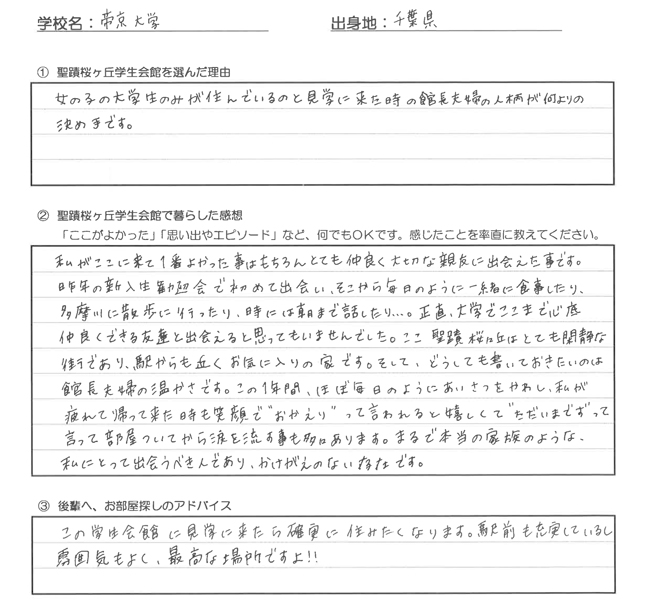 学校名：帝京大学 出身地：千葉県
① 聖蹟桜ヶ丘学生会館を選んだ理由
女の子の大学生のみが住んでいるのと見学に来た時の館長夫婦の人柄が何よりの
決め手です。
② 聖蹟桜ヶ丘学生会館で暮らした感想
「ここがよかった」「思い出やエピソード」など、何でもOKです。感じたことを率直に教えてください。
私がここに来て1番よかった事はもちろんとても仲良く大切な親友に出会えた事です。
昨年の新入生歓迎会で初めて出会い、そこから毎日のように一緒に食事したり、
多摩川に散歩に行ったり、時には朝まで話したり…。正直、大学でここまで心底
仲良くできる友達と出会えると思ってもいませんでした。ここ聖蹟桜ヶ丘はとても閑静な
街であり、駅からも近くお気に入りの家です。そして、どうしても書いておきたいのは
館長夫婦の温かさです。この1年間、ほぼ毎日のようにあいさつをかわし、私が
疲れて帰って来た時も笑顔で"おかえり"って言われると嬉しくて"ただいまです"って
言って部屋ついてから涙を流す事も多々あります。まるで本当の家族のような、
私にとって出会うべき人であり、かけがえのない存在です。
③ 後輩へ、お部屋探しのアドバイス
この学生会館に見学に来たら確実に住みたくなります。駅前も充実しているし
雰囲気もよく、最高な場所ですよ!!